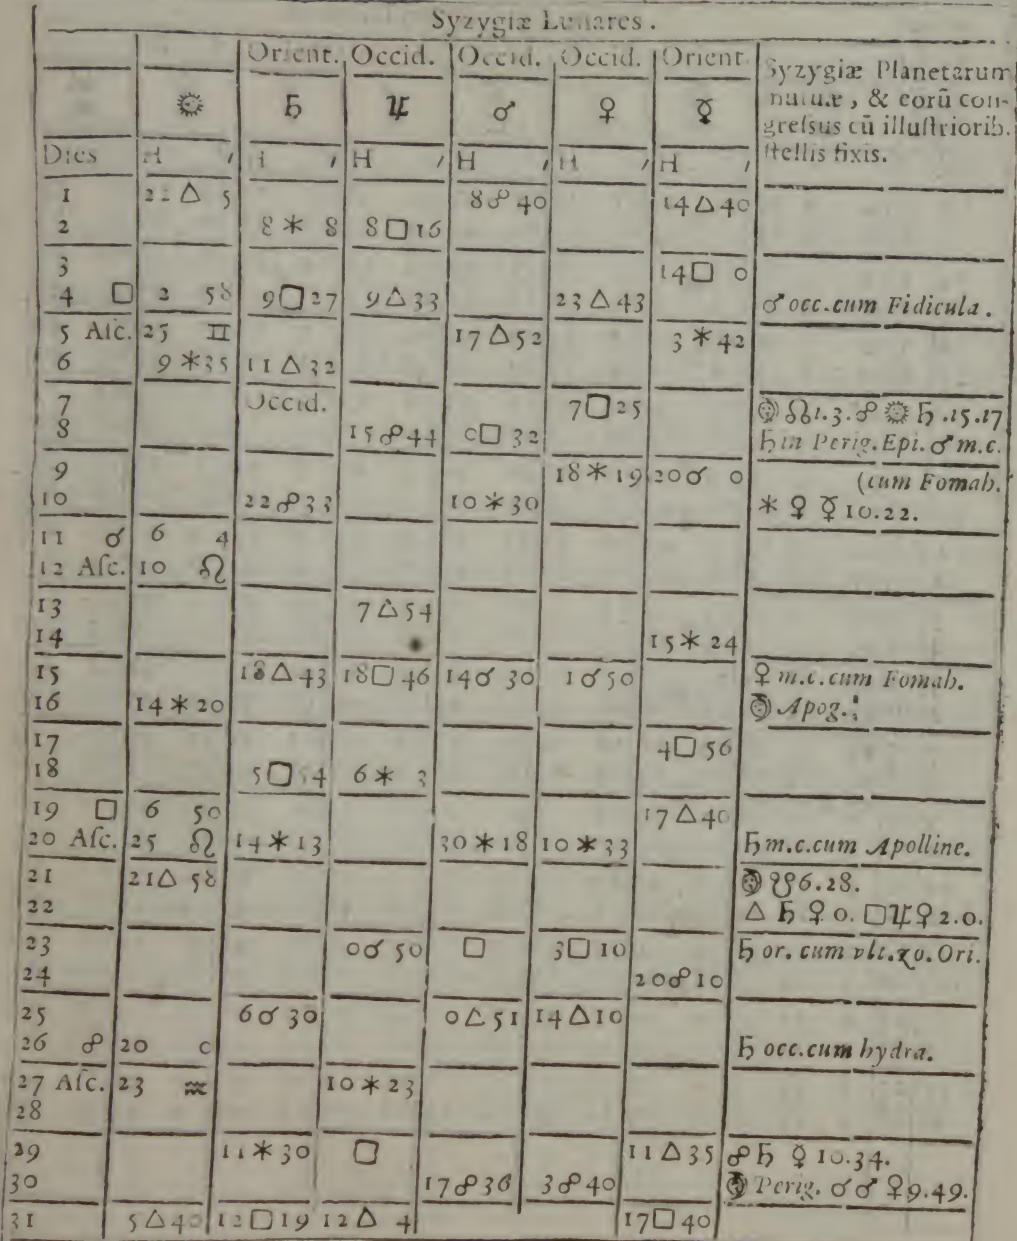 Syzygiæ Lunares.
Orient. Occid. Occid. Occid. Orient. Syzygiæ Planetarum
☼ ♄ ♃ ♂ ♀ ☿ mutuæ, & eorū con-
greſsus cū illuſtriorib.
Dies H ′ H ′ H ′ H ′ H ′ H ′ ſtellis fixis.
1 22 △ 5 8 ☍ 40 14 △ 40
2 8 ⚹ 8 8 □ 16
3 14 □ 0
4 □ 2 58 9 □ 27 9 △ 33 23 △ 43 ♂ occ.cum Fidicula.
5 Aſc. 25 ♊ 17 △ 52 3 ⚹ 42
6 9 ⚹ 35 11 △ 32
7 Occid. 7 □ 25 ☽ ☊ 1.3. ☍ ☼ ♄ .15.17
8 15 ☍ 44 0 □ 32 ♄ in Perig. Epi. ♂ m.c.
9 18 ⚹ 19 20 ☌ 0 (cum Fomah.
10 22 ☍ 33 10 ⚹ 30 ⚹ ♀ ☿ 10.22.
11 ☌ 6 4
12 Aſc. 10 ♌
13 7 △ 54
14 15 ⚹ 24
15 18 △ 43 18 □ 46 14 ☌ 30 1 ☌ 50 ♀ m.c.cum Fomah.
16 14 ⚹ 20 ☽ Apog.
17 4 □ 56
18 5 □ 54 6 ⚹ 3
19 □ 6 50 17 △ 40
20 Aſc. 25 ♌ 14 ⚹ 13 30 ⚹ 18 10 ⚹ 33 ♄ m.c.cum Apolline.
21 21 △ 58 ☽ ☋ 6.28.
22 △ ♄ ♀ 0. □ ♃ ♀ 2.0.
23 0 ☌ 50 □ 3 □ 10 ♄ or. cum vlt. zo. Ori.
24 20 ☍ 10
25 6 ☌ 30 0 △ 51 14 △ 10
26 ☍ 20 0 ♄ occ.cum hydra.
27 Aſc. 23 ♒ 10 ⚹ 23
28
29 11 ⚹ 30 □ 11 △ 35 ☍ ♄ ☿ 10.34.
30 17 ☍ 36 3 ☍ 40 ☽ Perig. ☌ ♂ ♀ 9.49.
31 5 △ 40 12 □ 19 12 △ 4 17 □ 40